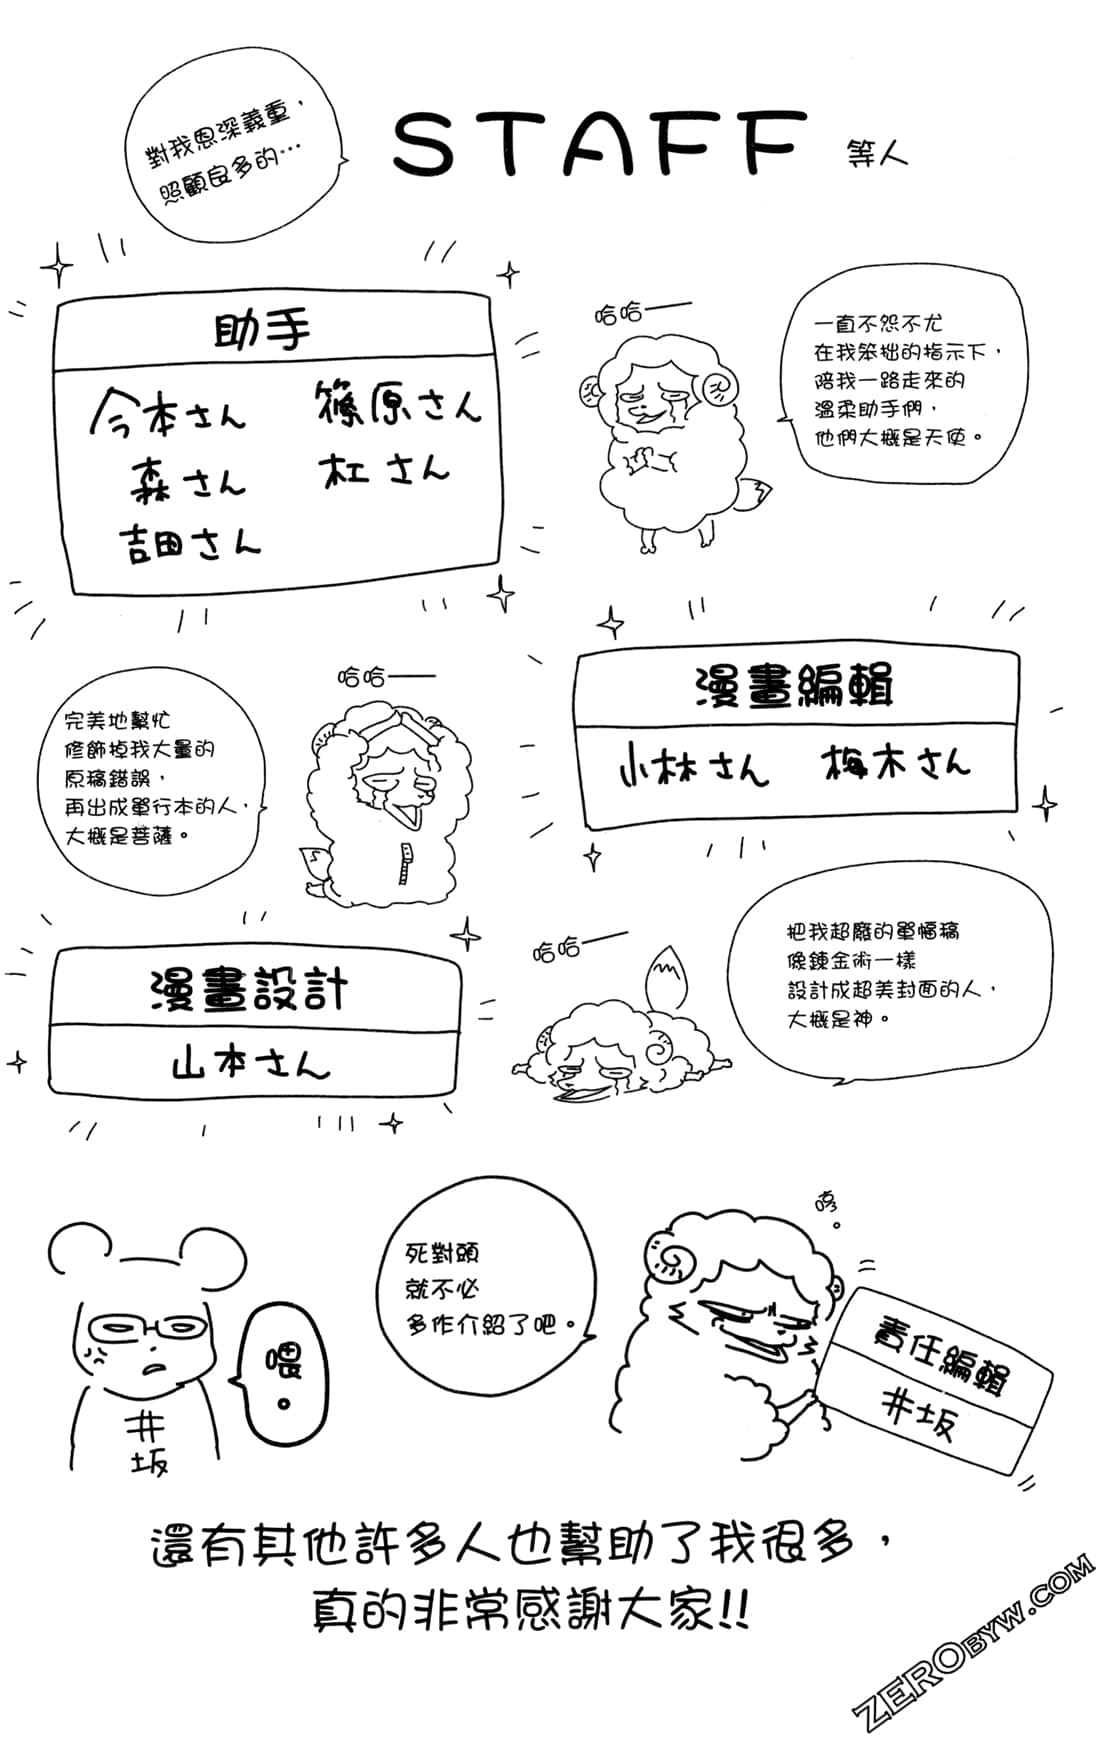 對我恩深義重，
照顧良多的…
STAFF 等人
助手
今本さん 篠原さん
森さん 杜さん
吉田さん
哈哈──
一直不怨不尤
在我笨拙的指示下，
陪我一路走來的
溫柔助手們，
他們大概是天使。
漫畫編輯
小林さん 梅木さん
哈哈──
完美地幫忙
修飾掉我大量的
原稿錯誤，
再出成單行本的人，
大概是菩薩。
漫畫設計
山本さん
哈哈──
把我超廢的單幅稿
像鍊金術一樣
設計成超美封面的人，
大概是神。
井坂
喂。
死對頭
就不必
多作介紹了吧。
哼。
責任編輯
井坂
還有其他許多人也幫助了我很多，
真的非常感謝大家!!
ZEROBYW.COM